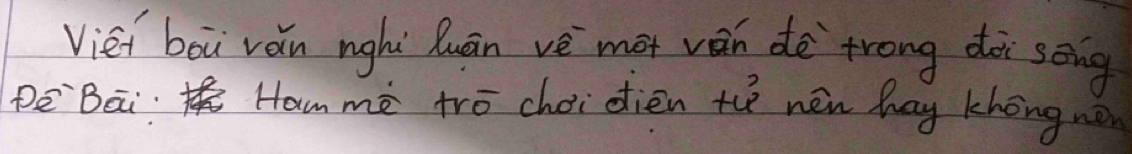 Viết bài văn nghị luận về một vấn đề trong đời sống
Đề Bài: Ham mê trò chơi điện tử nên hay không nên